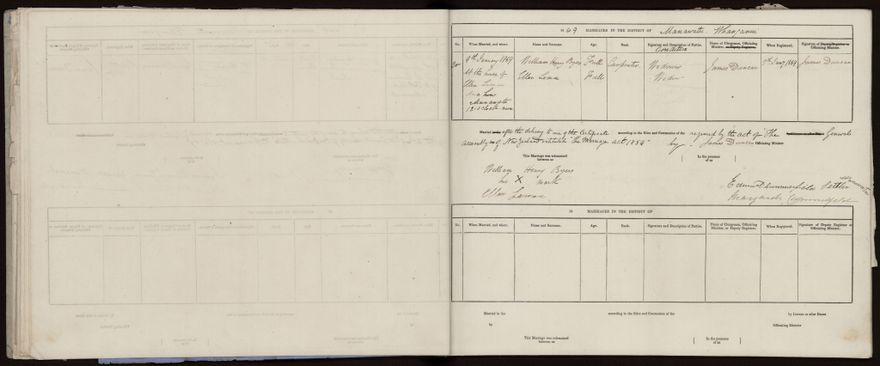 1869 MARRIAGES IN THE DISTRICT OF Manawatu Wanganui
No. When Married, and where. Name and Surname. Age. Rank. Signature and Description of Parties. Condition Name of Clergyman, Officiating Minister, or Deputy Registrar. When Registered. Signature of Deputy Registrar or Officiating Minister.
9th January 1869 William Henry Byers Full Carpenter Widower James Duncan 9th Jany 1869 James Duncan
At the house of Ellen Full Widow
Manawatu
12 o'clock noon
Married after the delivery to me of the Certificate according to the Rites and Ceremonies of the required by the act of The General
Assembly of New Zealand intituled "The Marriage Act 1854" by James Duncan Officiating Minister
This Marriage was solemnized between us In the presence of us
William Henry Byers
his X mark
Ellen
18 MARRIAGES IN THE DISTRICT OF
No. When Married, and where. Name and Surname. Age. Rank. Signature and Description of Parties. Name of Clergyman, Officiating Minister, or Deputy Registrar. When Registered. Signature of Deputy Registrar or Officiating Minister.
Married in the according to the Rites and Ceremonies of the by License or after Banns
by Officiating Minister
This Marriage was solemnized between us In the presence of us